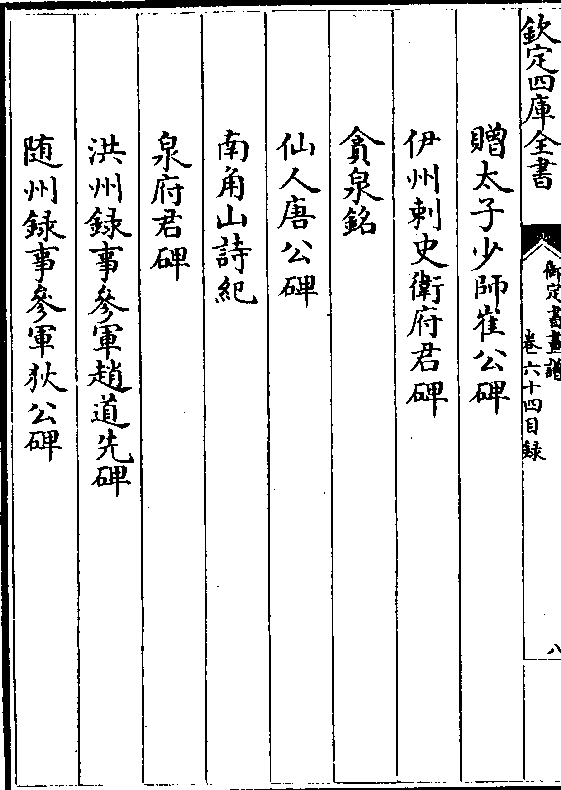 欽定四庫全書
御定書畫譜
卷六十四目録
八
贈太子少師崔公碑
伊州刺史衛府君碑
貪泉銘
仙人唐公碑
南角山詩紀
泉府君碑
洪州録事參軍趙道先碑
随州録事參軍狄公碑